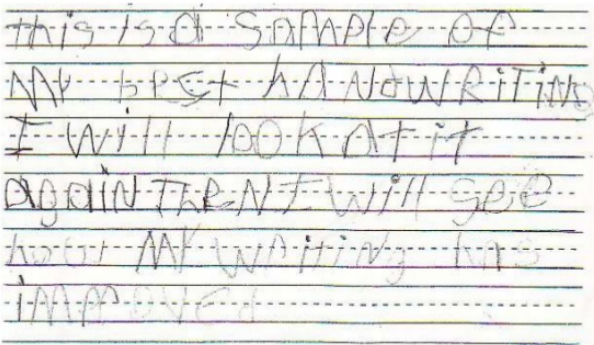 this is a SAMPle of
My best hANdWRiTiNg
I will look At it
AgaiN TheN I will see
how My WRiting has
iMpRoved